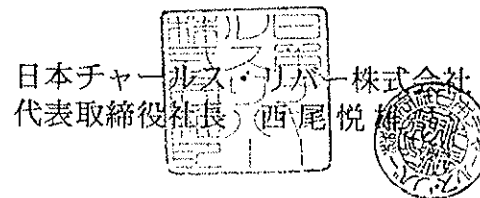 日本チャールス・リバー株式会社
代表取締役社長 西尾悦雄